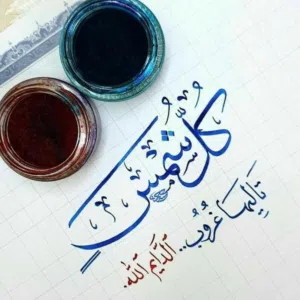 كُلُّ شَمْسٍ
تَالِيهَا غُرُوب.. اَلدَّايِم اَللّٰه.